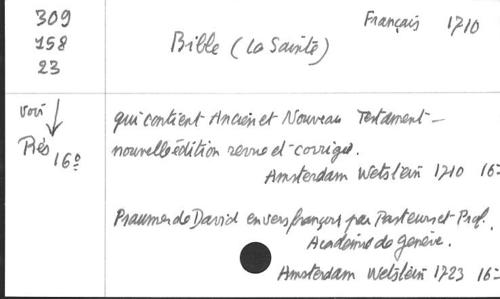 309
158
23
Français 1710
Bible (La Sainte)
voir
Rés 16º
qui contient Ancien et Nouveau Testament -
nouvelle édition revue et corrigée.
Amsterdam Wetstein 1710 16º
Psaumes de David en vers françois par Pasteurs et Prof.
Académie de Genève.
Amsterdam Wetstein 1723 16º